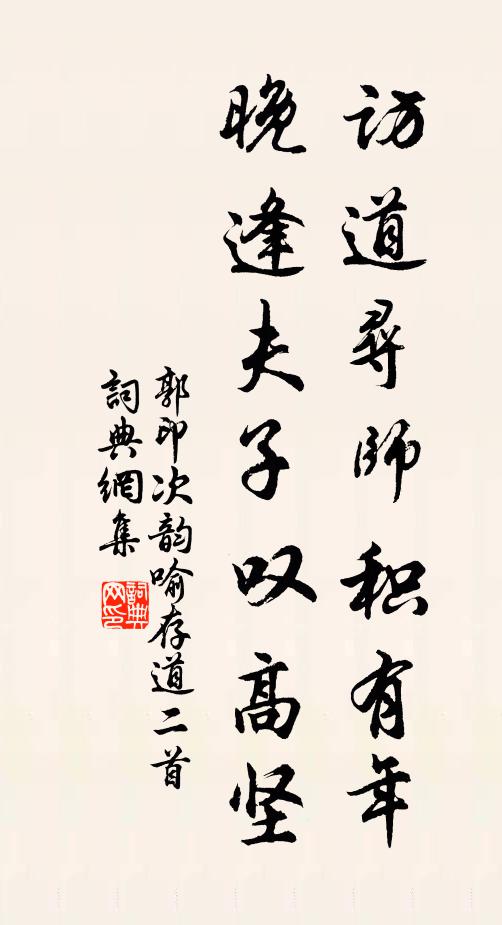 访道寻师积有年
晚逢夫子叹高坚
郭印次韵喻存道二首
詞典網集
詞典
网印